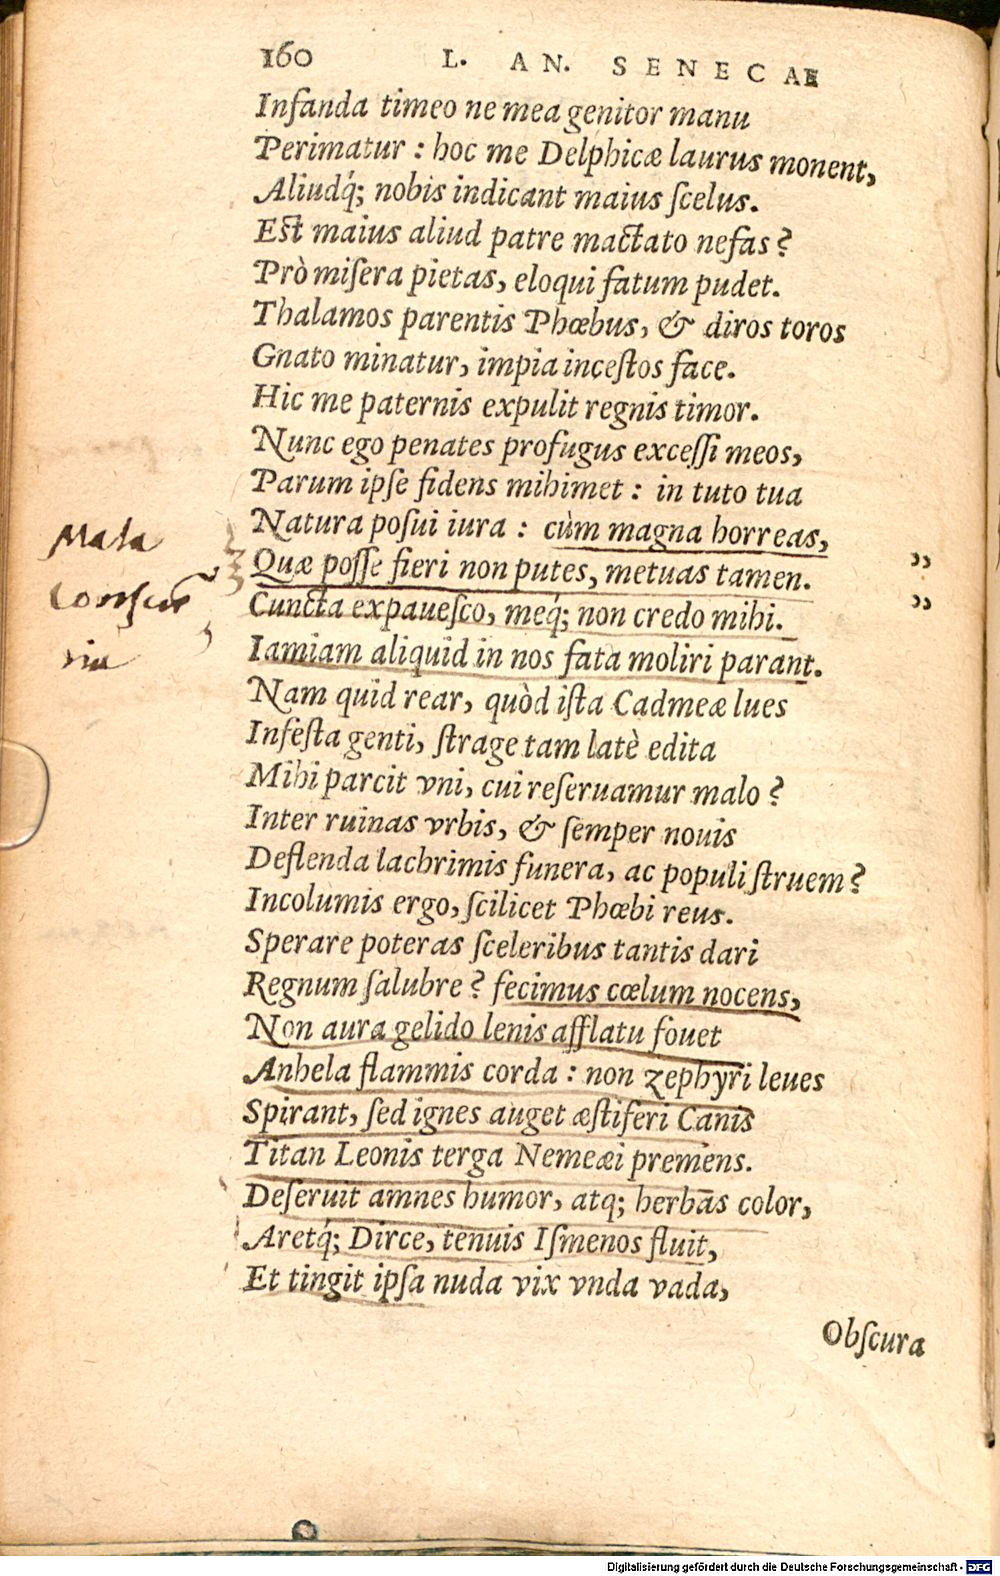 160 L. AN. SENECAE
Infanda timeo ne mea genitor manu
Perimatur : hoc me Delphicæ laurus monent,
Aliudq́; nobis indicant maius ſcelus.
Est maius aliud patre mactato nefas?
Prò miſera pietas, eloqui fatum pudet.
Thalamos parentis Phœbus, & diros toros
Gnato minatur, impia inceſtos face.
Hic me paternis expulit regnis timor.
Nunc ego penates profugus exceſſi meos,
Parum ipſe fidens mihimet : in tuto tua
Natura poſui iura : cùm magna horreas,
Quæ poſſe fieri non putes, metuas tamen. ”
Cuncta expaueſco, meq́; non credo mihi. ”
Iamiam aliquid in nos fata moliri parant.
Nam quid rear, quòd iſta Cadmeæ lues
Infeſta genti, ſtrage tam latè edita
Mihi parcit vni, cui reſeruamur malo?
Inter ruinas vrbis, & ſemper nouis
Deflenda lachrimis funera, ac populi ſtruem?
Incolumis ergo, ſcilicet Phœbi reus.
Sperare poteras ſceleribus tantis dari
Regnum ſalubre? fecimus cœlum nocens,
Non aura gelido lenis afflatu fouet
Anhela flammis corda : non zephyri leues
Spirant, ſed ignes auget æſtiferi Canis
Titan Leonis terga Nemeæi premens.
Deſeruit amnes humor, atq; herbas color,
Aretq́; Dirce, tenuis Iſmenos fluit,
Et tingit ipſa nuda vix vnda vada,
Obſcura
Mala
Digitalisierung gefördert durch die Deutsche Forschungsgemeinschaft - DFG